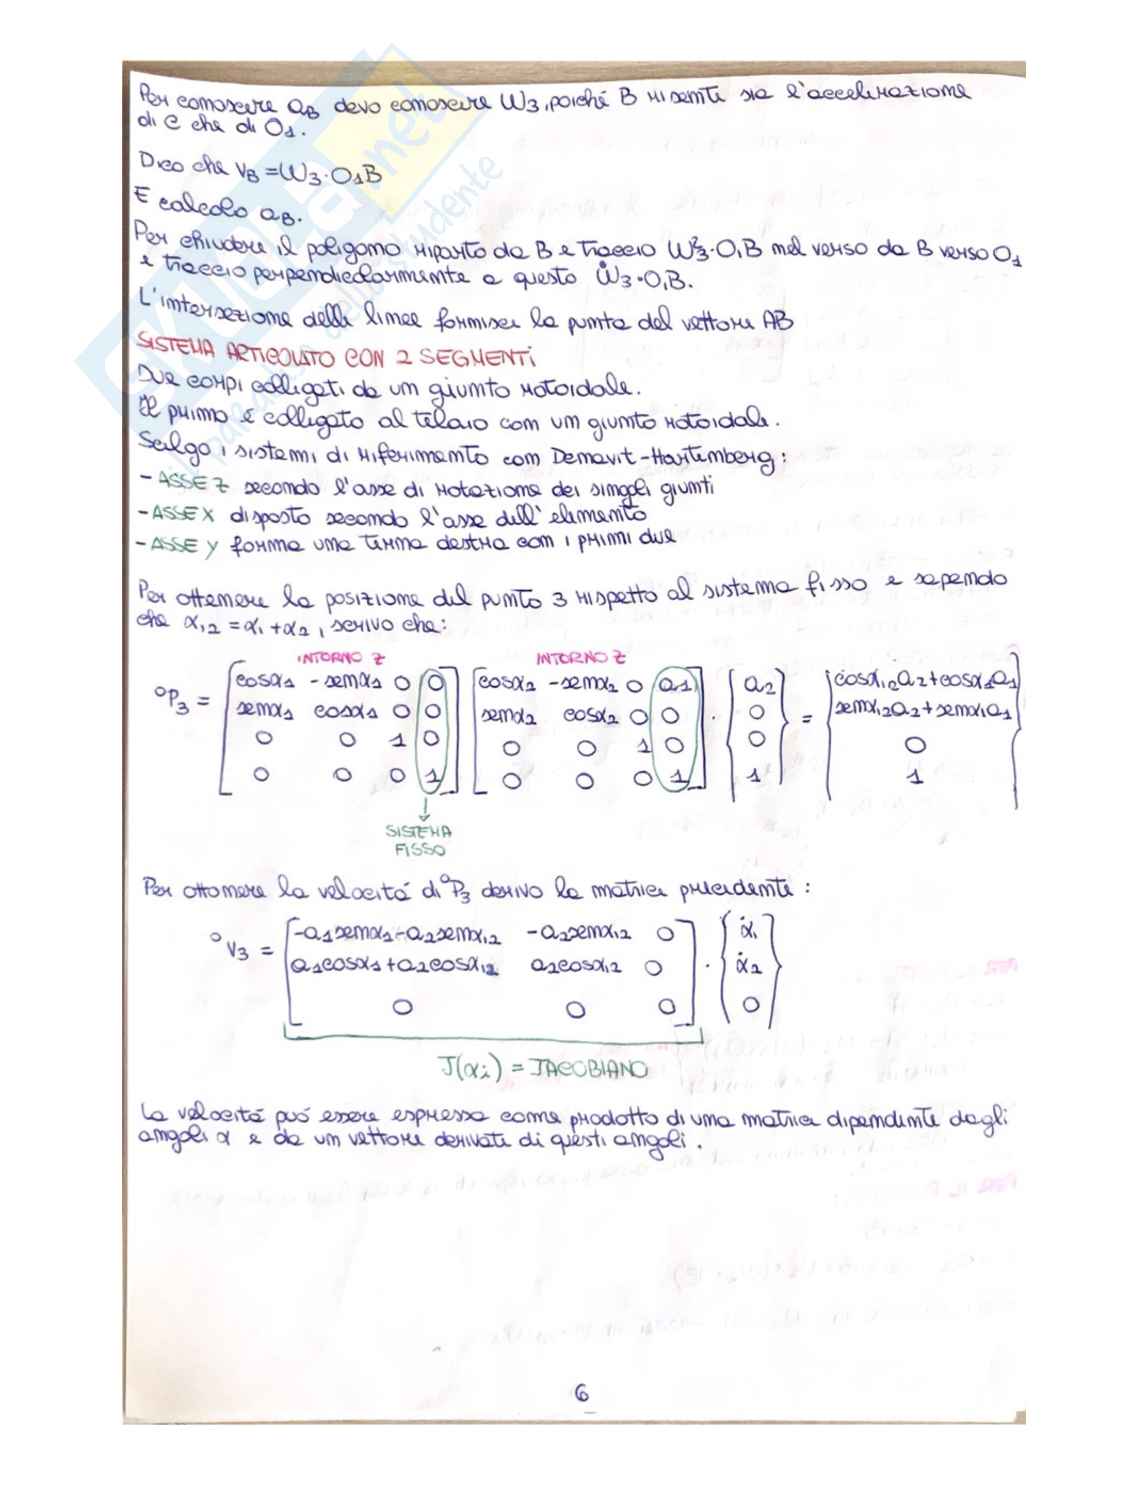 Per conoscere aB devo conoscere ω3, poiché B risente sia l'accelerazione
di C che di O1.
Dico che VB = ω3·O1B
E calcolo aB.
Per chiudere il poligono riparto da B e traccio ω3²·O1B nel verso da B verso O1
e traccio perpendicolarmente a questo ω̇3·O1B.
L'intersezione delle linee fornisce la punta del vettore AB
SISTEMA ARTICOLATO CON 2 SEGMENTI
Due corpi collegati da un giunto rotoidale.
Il primo è collegato al telaio con un giunto rotoidale.
Scelgo i sistemi di riferimento con Denavit-Hartemberg:
- ASSE Z secondo l'asse di rotazione dei singoli giunti
- ASSE X disposto secondo l'asse dell'elemento
- ASSE Y forma una terna destra con i primi due
Per ottenere la posizione del punto 3 rispetto al sistema fisso e sapendo
che α12 = α1 + α2, scrivo che:
INTORNO Z INTORNO Z
cosα1 -senα1 0 0 cosα2 -senα2 0 a1 a2 cosα12a2+cosα1a1
°P3 = senα1 cosα1 0 0 senα2 cosα2 0 0 · 0 = senα12a2+senα1a1
0 0 1 0 0 0 1 0 0 0
0 0 0 1 0 0 0 1 1 1
SISTEMA
FISSO
Per ottenere la velocitá di °P3 derivo la matrice precedente:
-a1senα1-a2senα12 -a2senα12 0 α̇1
°V3 = a1cosα1+a2cosα12 a2cosα12 0 · α̇2
0 0 0 0
J(αi) = JACOBIANO
La velocitá puó essere espressa come prodotto di una matrice dipendente dagli
angoli α e da un vettore derivate di questi angoli.
6
SKUOLA.net
paradiso dello studente